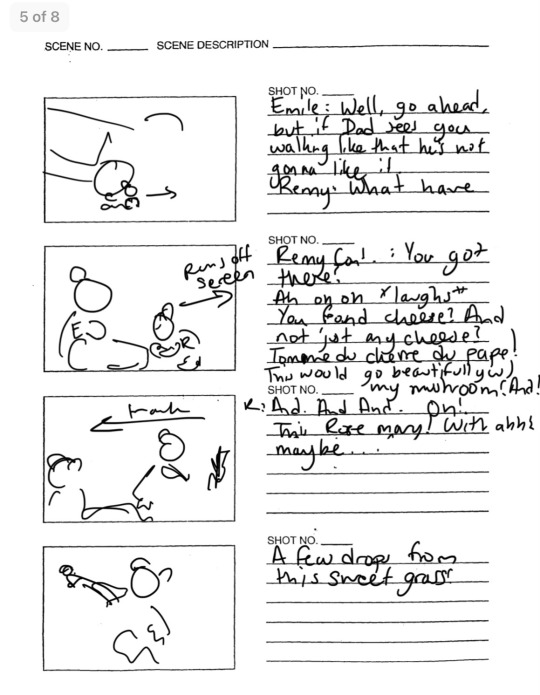 5 of 8
SCENE NO. SCENE DESCRIPTION
SHOT NO.
Emile: Well, go ahead,
but if Dad sees you
walking like that he's not
gonna like it
Remy: What have
SHOT NO.
Runs off
screen
E
R
Remy Con!. : You got
there?
Ah oh oh *laughs*
You found cheese? And
not just any cheese?
Tomme du chevre du pape!
This would go beautifully w/
my mushroom! And!
SHOT NO.
track
R: And. And And. Oh!
This Rosemary! With ahh
maybe...
SHOT NO.
A few drops from
this sweet grass